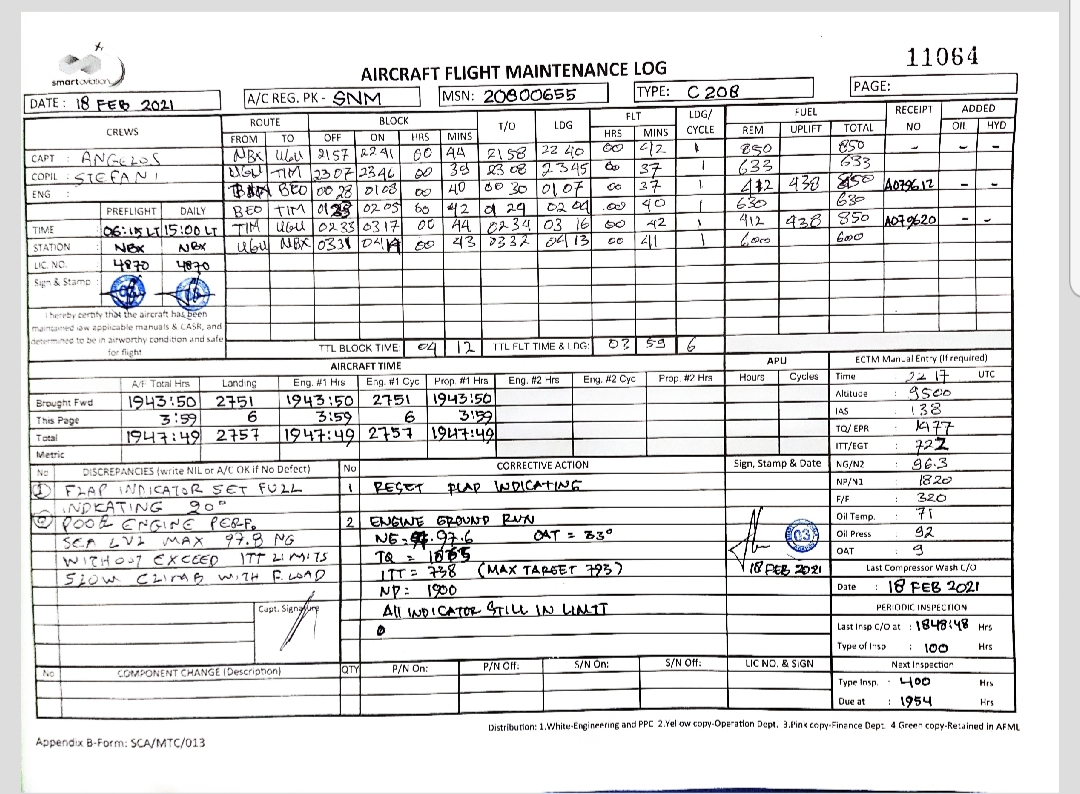 11064
smartaviation
AIRCRAFT FLIGHT MAINTENANCE LOG
DATE : 18 FEB 2021
A/C REG. PK - SNM
MSN: 20800655
TYPE: C 208
PAGE:
CREWS ROUTE BLOCK T/O LDG FLT LDG/ CYCLE FUEL RECEIPT NO ADDED
FROM TO OFF ON HRS MINS HRS MINS REM UPLIFT TOTAL OIL HYD
CAPT : ANGELOS NBX UGU 2157 2241 00 44 2158 22 40 00 42 1 850 850 - -
COPIL : STEFANI UGU TIM 2307 2346 00 39 2308 2345 00 37 1 633 633
ENG : BEO 00 28 01 08 00 40 00 30 01 07 00 37 1 412 438 850 A079612 - -
PREFLIGHT DAILY BEO TIM 02 05 00 42 01 29 02 09 00 40 1 630 630
TIME 06:15 LT 15:00 LT TIM UGU 0233 0317 00 44 0234 03 16 00 42 1 412 438 850 A079620 - -
STATION NBX NBX UGU NBX 0331 0414 00 43 0332 0413 00 41 1 600
LIC. NO. 4870 4870
Sign & Stamp :
I hereby certify that the aircraft has been
maintained iaw applicable manuals & CASR, and
determined to be in airworthy condition and safe
for flight
TTL BLOCK TIVE 04 12 TTL FLT TIME & LDG: 03 59 6
AIRCRAFT TIME APU ECTM Manual Entry (If required)
A/F Total Hrs Landing Eng. #1 Hrs Eng. #1 Cyc Prop. #1 Hrs Eng. #2 Hrs Eng. #2 Cyc Prop. #2 Hrs Hours Cycles
Brought Fwd 1943:50 2751 1943:50 2751 1943:50
This Page 3:59 6 3:59 6 3:59
Total 1947:49 2757 1947:49 2757 1947:49
Metric
Time : 22 17 UTC
Altitude : 9500
IAS : 138
TQ/ EPR : 1477
ITT/EGT : 722
NG/N2 : 96.3
NP/N1 : 1820
F/F : 320
Oil Temp. : 71
Oil Press : 92
OAT : 9
Last Compressor Wash C/O
Date : 18 FEB 2021
PERIODIC INSPECTION
Last Insp C/O at : 1848:48 Hrs
Type of Insp : 100 Hrs
Next Inspection
Type Insp. : 400 Hrs
Due at : 1954 Hrs
No DISCREPANCIES (write NIL or A/C OK if No Defect) No CORRECTIVE ACTION Sign, Stamp & Date
1 FLAP INDICATOR SET FULL
INDICATING 20°
2 POOR ENGINE PERF.
SEA LVL MAX 97.8 NG
WITHOUT EXCEED ITT LIMITS
SLOW CLIMB WITH F.LOAD
Capt. Signature
1 RESET FLAP INDICATING
2 ENGINE GROUND RUN
NG = 97.6 OAT = 33°
TQ =
ITT = 738 (MAX TARGET 793)
NP: 1900
All INDICATOR STILL IN LIMIT
03
18 FEB 2021
No COMPONENT CHANGE (Description) QTY P/N On: P/N Off: S/N On: S/N Off: LIC NO. & SIGN
Distribution: 1.White-Engineering and PPC 2.Yellow copy-Operation Dept. 3.Pink copy-Finance Dept. 4.Green copy-Retained in AFML
Appendix B-Form: SCA/MTC/013